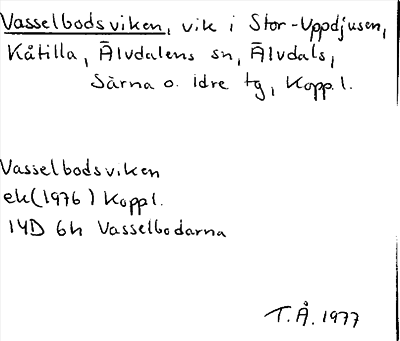 Vasselbodsviken, vik i Stor-Uppdjusen,
Kåtilla, Älvdalens sn, Älvdals,
Särna o. Idre tg, Kopp.l.
Vasselbodsviken
ek(1976) Koppl.
14D 6h Vasselbodarna
T.Å. 1977